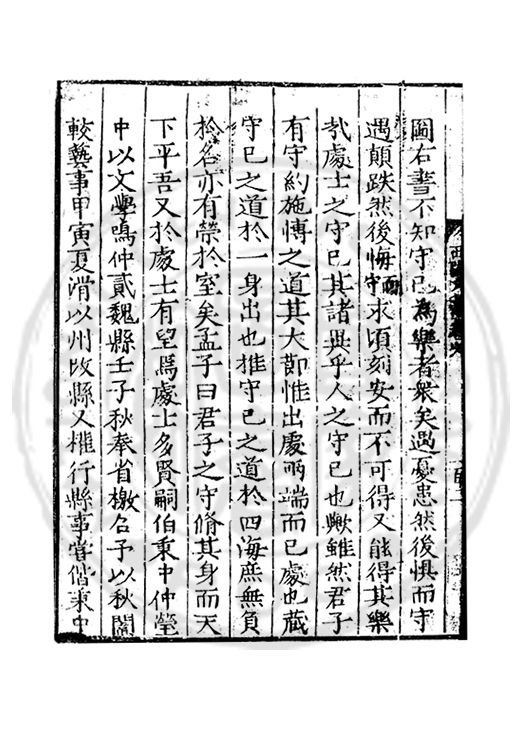 圖右書不知守己為樂者衆矣遇憂患然後惧而守
遇顛跌然後悔而守求頃刻安而不可得又能得其樂
㦲處士之守已其諸異乎人之守已也歟雖然君子
有守約施愽之道其大節惟出處兩端而已處也藏
守已之道於一身出也推守已之道於四海庶無負
於名亦有榮於室矣孟子曰君子之守脩其身而天
下平吾又於處士有望焉處士多賢嗣伯秉中仲瑩
中以文學鳴仲貳魏縣壬子秋奉省檄召予以秋闈
較藝事甲寅夏滑以州攺縣又權行縣事甞偕秉中